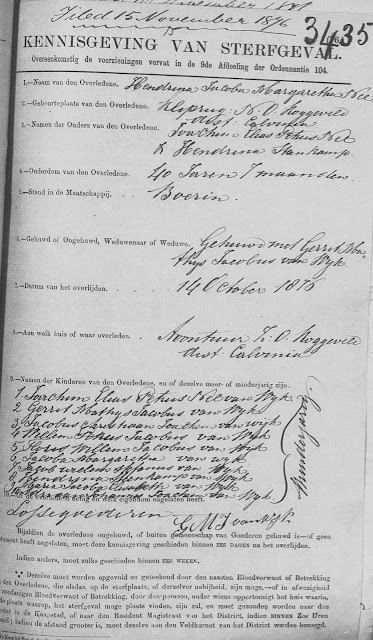 Filed 15 November 1876
3435
KENNISGEVING VAN STERFGEVAL.
Overeenkomstig de voorzieningen vervat in de 9de Afdeeling der Ordonnantie 104.
1.—Naam van den Overledene. Hendrina Jacoba Margaretha Nel
2.—Geboorteplaats van den Overledene. Kloprug N. O. Roggeveld
dist. Calvinia
3.—Namen der Ouders van den Overledene. Joachim Elias Petrus Nel
& Hendrina Steenkamp
4.—Ouderdom van den Overledene. 40 Jaren 7 maanden
5.—Stand in de Maatschappij. Boerin
6.—Gehuwd of Ongehuwd, Weduwenaar of Weduwe. Gehuwd met Gerrit Ma
thys Jacobus van Wyk
7.—Datum van het overlijden. 14 October 1876
8.—Aan welk huis of waar overleden. Avontuur N. O. Roggeveld
dist. Calvinia
9.—Namen der Kinderen van den Overledene, en of dezelve meer- of minderjarig zijn.
1 Joachim Elias Petrus Nel van Wyk
2 Gerrit Mathys Jacobus van Wyk
3 Jacobus Joachim van wijk
4 Willem Petrus Jacobus van Wyk
5 Willem Jacobus van Wyk
6 Jacoba Margaretha van wyk
7 Jacob Willem van Wyk
8 Hendrina Steenkamp van Wyk
9 Maria Jacoba Elizabeth van Wyk
Joachim van Wyk
Minderjarig
nagelaten heeft.
Losse goederen
G M J van Wijk
Bijaldien de overledene ongehuwd, of buiten gemeenschap van Goederen gehuwd is—of geen
Testament heeft nagelaten, moet deze kennisgeving geschieden binnen ZES DAGEN na het overlijden.
Indien anders, moet zulks geschieden binnen ZES WEKEN.
Dezelve moet worden opgevuld en geteekend door den naasten Bloedverwant of Betrekking
den Overledene, die alsdan op de sterfplaats, of derzelver nabijheid, zijn moge,—of in afwezigheid
zoodanigen Bloedverwant of Betrekking, door den persoon, onder wiens opzigt het huis waarin,
de plaats waarop, het sterfgeval moge plaats vinden, zijn zal, en moet gezonden worden aan den
in de Kaapstad, of aan den Resident Magistraat van het District, indien BINNEN ZES Uren
; indien de afstand grooter is, moet dezelve aan den Veldkornet van het District worden